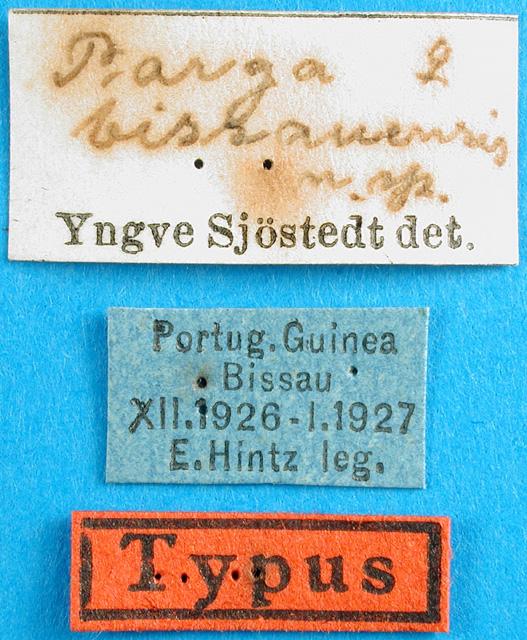 Parga ♀
bissauensis
n. sp.
Yngve Sjöstedt det.
Portug. Guinea
Bissau
XII.1926-I.1927
E. Hintz leg.
Typus